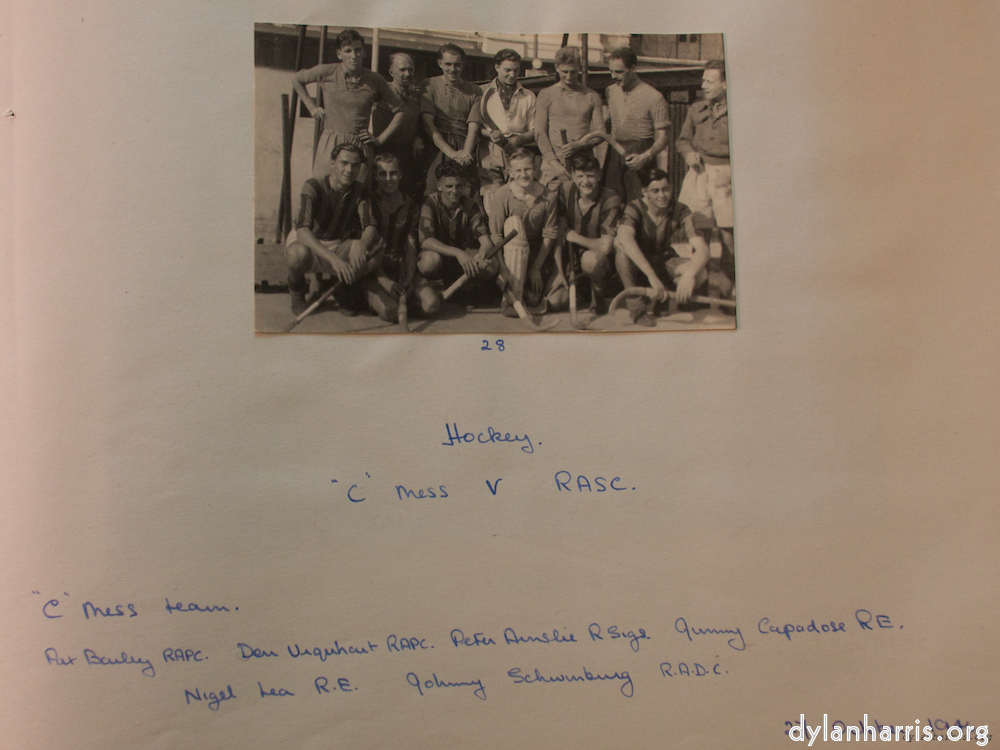 28
Hockey.
"C" Mess V RASC.
"C" Mess team.
Pat RAPC. Den Urquhart RAPC. Peter Ainslie R Sigs. Jimmy Capadose R.E.
Nigel Lea R.E. Johnny Schwinburg R.A.D.C.
October
dylanharris.org